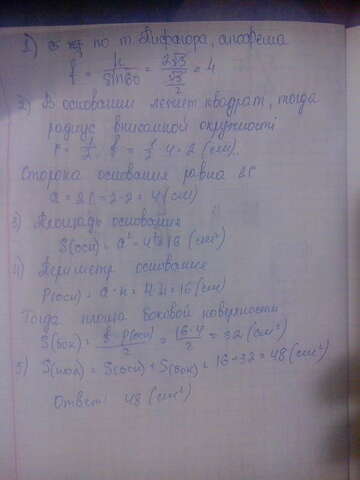 1) по т. Пифагора, апофема
f = h / sin60 = 2√3 / (√3/2) = 4
2) В основании лежит квадрат, тогда
радиус вписанной окружности
r = 1/2 · f = 1/2 · 4 = 2 (см).
Сторона основания равна 2r
a = 2r = 2·2 = 4 (см)
3) Площадь основания
S(осн) = a² = 4² = 16 (см²)
4) Периметр основания
P(осн) = a·4 = 4·4 = 16 (см)
Тогда площа боковой поверности
S(бок) = f · P(осн) / 2 = 16·4 / 2 = 32 (см²)
5) S(пол) = S(осн) + S(бок) = 16+32 = 48 (см²)
Ответ: 48 (см²)